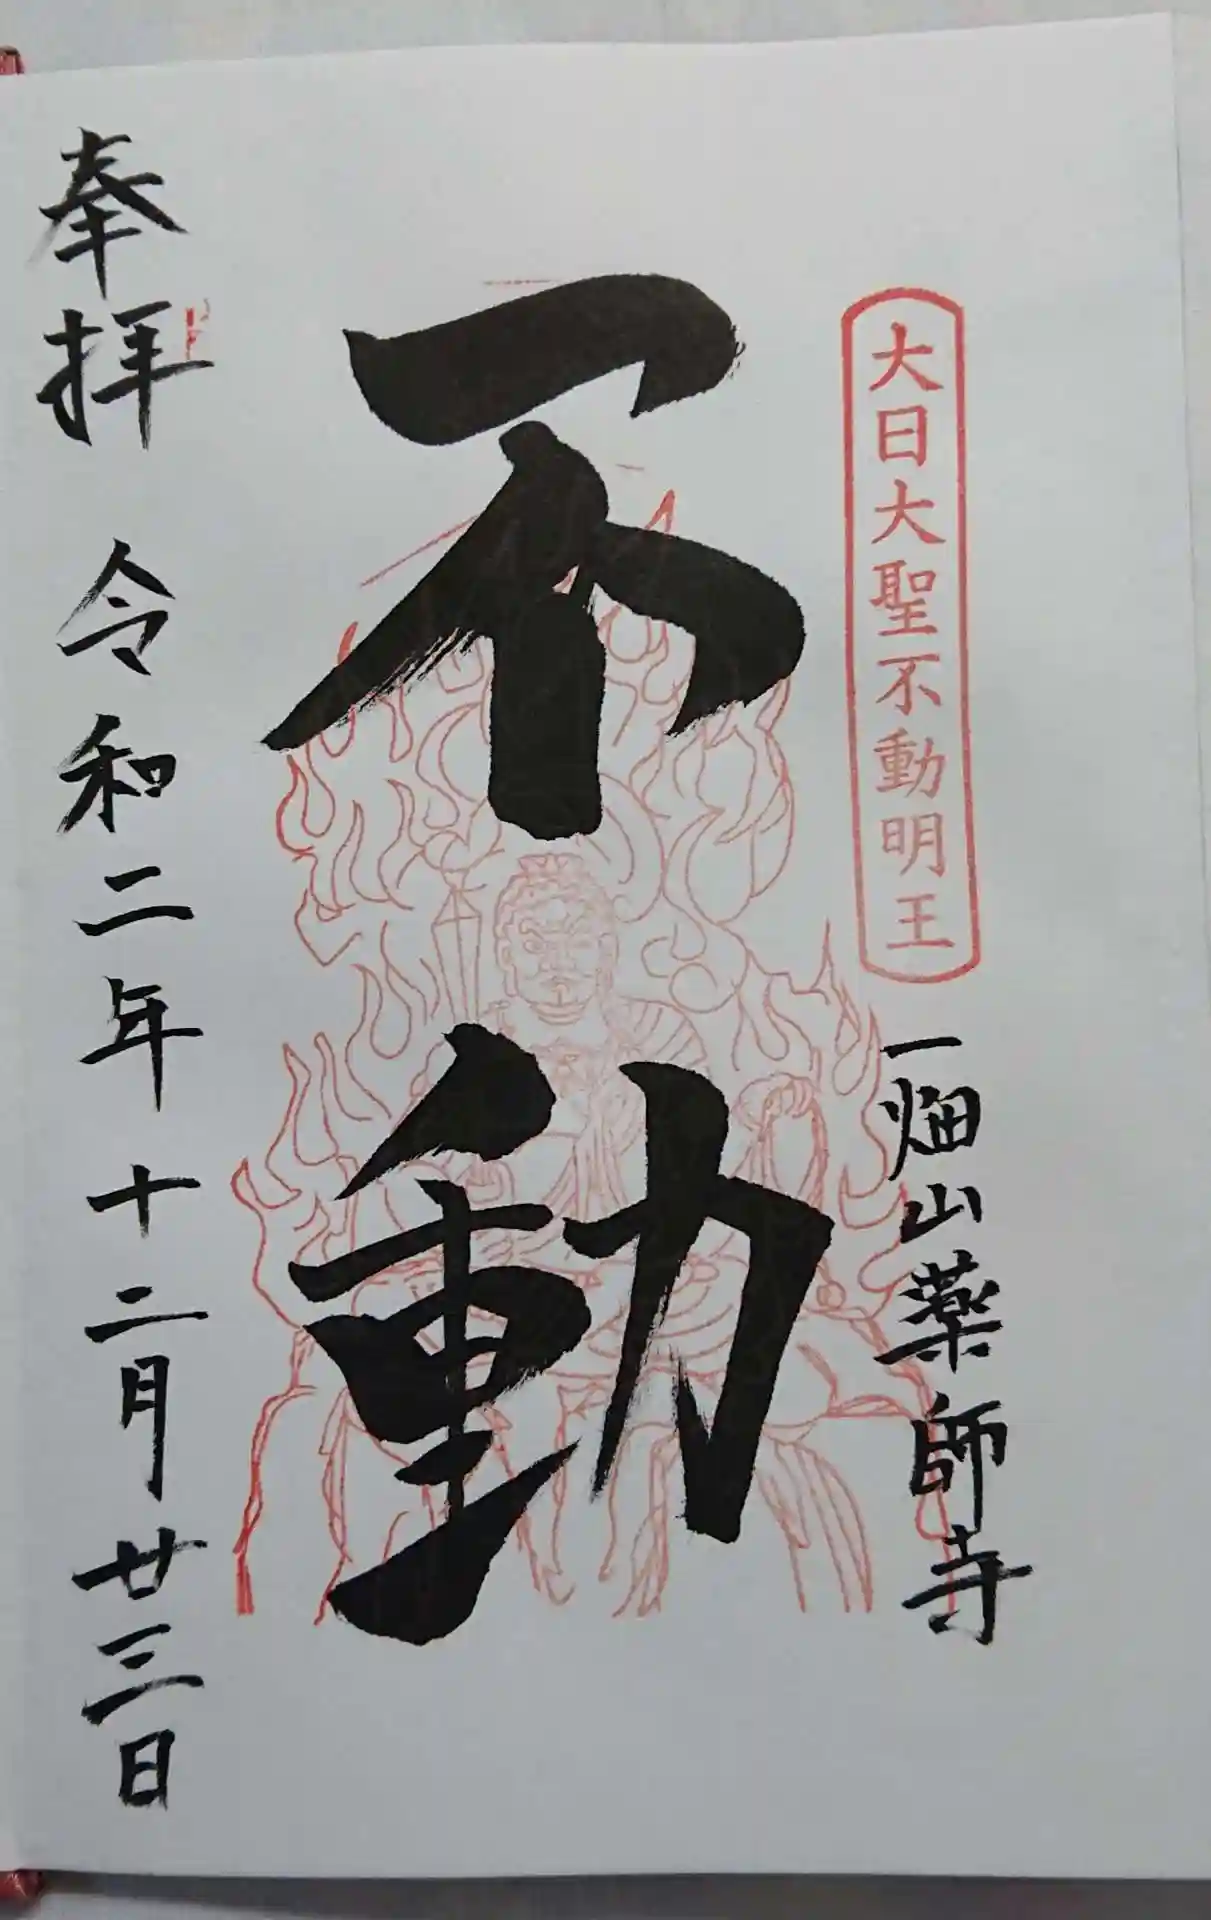 大日大聖不動明王
一畑山薬師寺
不動
奉拝 令和二年十二月廿三日